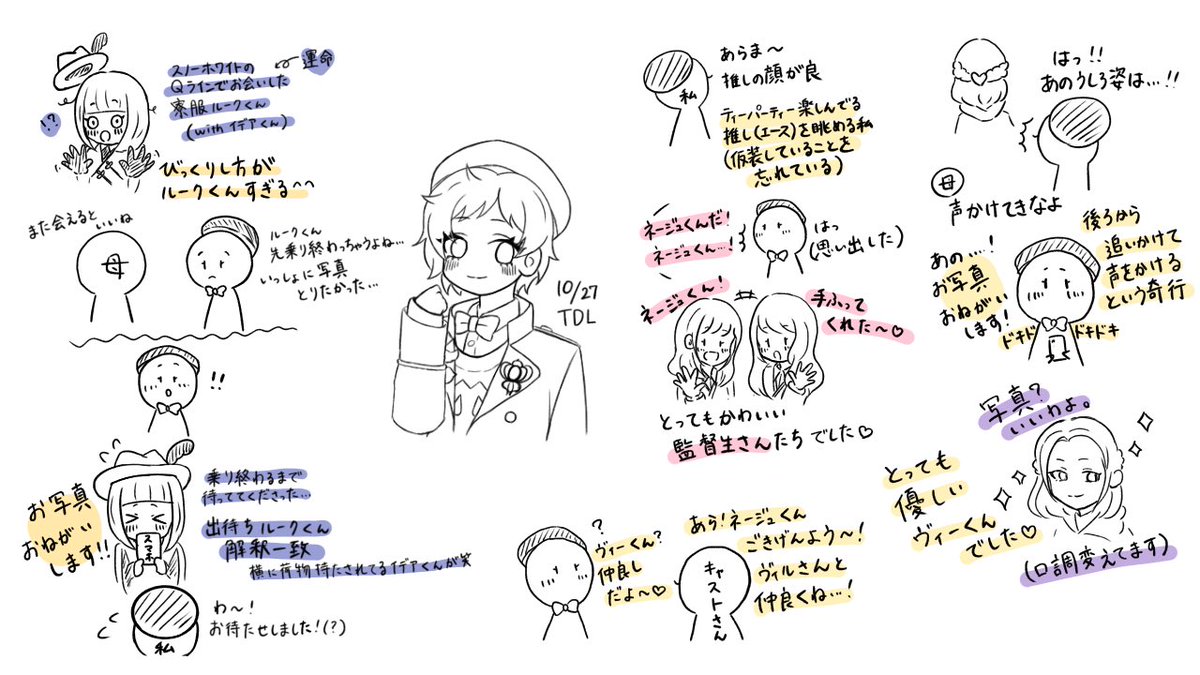 スノーホワイトの
Qラインでお会いした
寮服ルークくん
(with イデアくん)
運命
!?
びっくりし方が
ルークくんすぎる^^
また会えると
いいね
母
ルークくん
先乗り終わっちゃうよね…
いっしょに写真
とりたかった…
!!
お写真
おねがい
します!!
スマホ
乗り終わるまで
待っててくださった…
出待ちルークくん
解釈一致
横に荷物持たされてるイデアくんが笑
わ〜!
お待たせしました!(?)
私
10/27
TDL
あらま〜
推しの顔が良
私
ティーパーティー楽しんでる
推し(エース)を眺める私
(仮装していることを
忘れている)
ネージュくんだ!
ネージュくん…!
はっ
(思い出した)
ネージュくん!
手ふって
くれた〜♡
とってもかわいい
監督生さんたちでした♡
?
ヴィーくん?
仲良し
だよ〜♡
あら!ネージュくん
ごきげんよう〜!
ヴィルさんと
仲良くね…!
キャストさん
はっ!!
あのうしろ姿は…!!
母
声かけてきなよ
あの…!
お写真
おねがい
します!
後ろから
追いかけて
声をかける
という奇行
ドキドキ
ドキドキ
写真?
いいわよ。
とっても
優しい
ヴィーくん
でした♡
(口調変えてます)